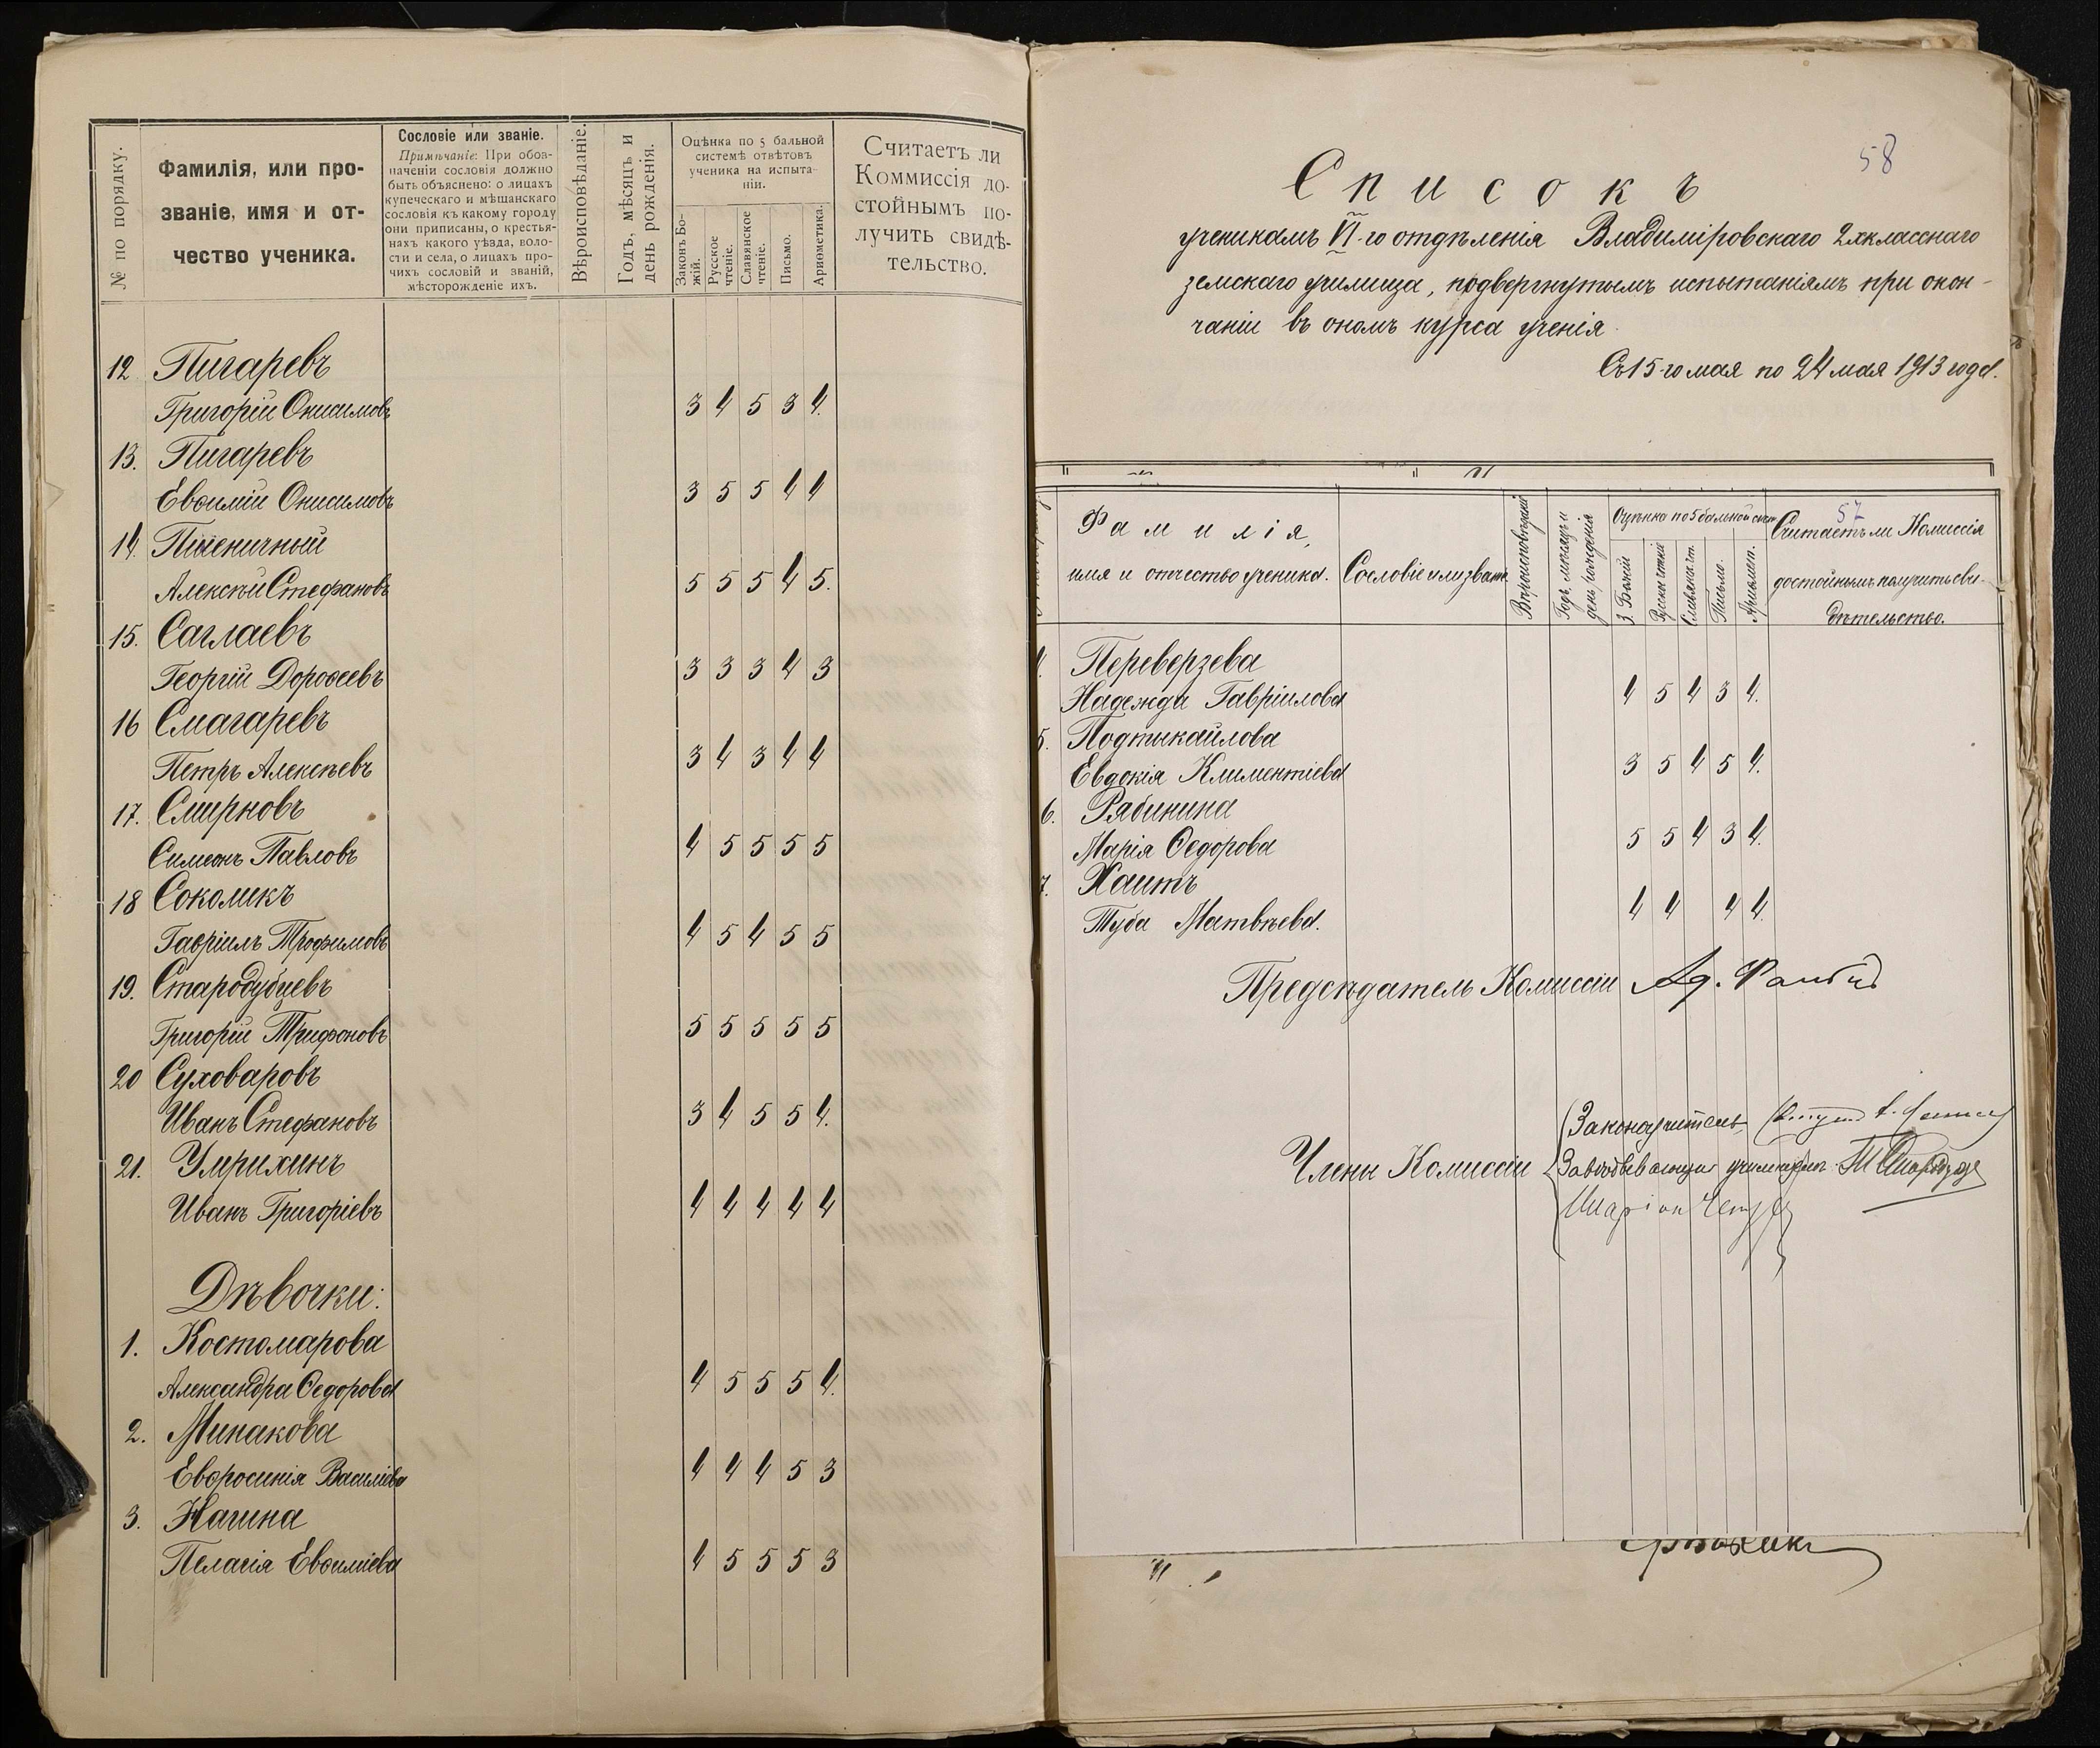 № по порядку.
Фамилія, или про-
званіе, имя и от-
чество ученика.
Сословіе или званіе.
Примѣчаніе: При обоз-
наченіи сословія должно
быть объяснено: о лицахъ
купеческаго и мѣщанскаго
сословія къ какому городу
они приписаны, о крестья-
нахъ какого уѣзда, воло-
сти и села, о лицахъ про-
чихъ сословій и званій,
мѣсторожденіе ихъ.
Вѣроисповѣданіе.
Годъ, мѣсяцъ и
день рожденія.
Оцѣнка по 5 бальной
системѣ отвѣтовъ
ученика на испыта-
ніи.
Законъ Бо-
жій.
Русское
чтеніе.
Славянское
чтеніе.
Письмо.
Ариѳметика.
Считаетъ ли
Коммиссія до-
стойнымъ по-
лучить свидѣ-
тельство.
12 Пигаревъ
Григорій Онисимовъ 3 4 5 3 4.
13. Пигаревъ
Евѳимій Онисимовъ 3 5 5 4 4
14. Пшеничный
Алексѣй Стефановъ 5 5 5 4 5.
15. Саглаевъ
Георгій Дороѳеевъ 3 3 3 4 3
16 Смагаревъ
Петръ Алексѣевъ 3 4 3 4 4
17. Смирновъ
Симеонъ Павловъ 4 5 5 5 5
18 Соколикъ
Гавріилъ Трофимовъ 4 5 4 5 5
19. Стародубцевъ
Григорій Трифоновъ 5 5 5 5 5
20 Суховаровъ
Иванъ Стефановъ 3 4 5 5 4.
21. Умрихинъ
Иванъ Григоріевъ 4 4 4 4 4
Дѣвочки:
1. Костомарова
Александра Ѳедорова 4 5 5 5 4.
2. Минакова
Евфросинія Василіева 4 4 4 5 3
3. Нагина
Пелагія Евѳиміева 4 5 5 5 3
58
Списокъ
ученикамъ VI-го отдѣленія Владиміровскаго 2хкласснаго
земскаго училища, подвергнутымъ испытаніямъ при окон-
чаніи въ ономъ курса ученія.
Съ 15-го мая по 24 мая 1913 года.
57
Фамилія,
имя и отчество ученика.
Сословіе или званіе
Вѣроисповѣданіе
Годъ, мѣсяцъ и
день рожденія
Оцѣнка по 5 бальной сист.
З. Божій
Русское чтеніе
Славянск. чт.
Письмо.
Ариѳмет.
Считаетъ ли Комиссія
достойнымъ получить сви-
дѣтельство.
4. Переверзева
Надежда Гавріилова 4 5 4 3 4.
5. Подтыкайлова
Евдокія Климентіева 3 5 4 5 4.
6. Рябинина
Марія Ѳедорова 5 5 4 3 4.
7. Хаитъ
Туба Матвѣева. 4 4 4 4.
Предсѣдатель Комиссіи
Члены Комиссіи
Законоучитель
Завѣдывающій училищемъ